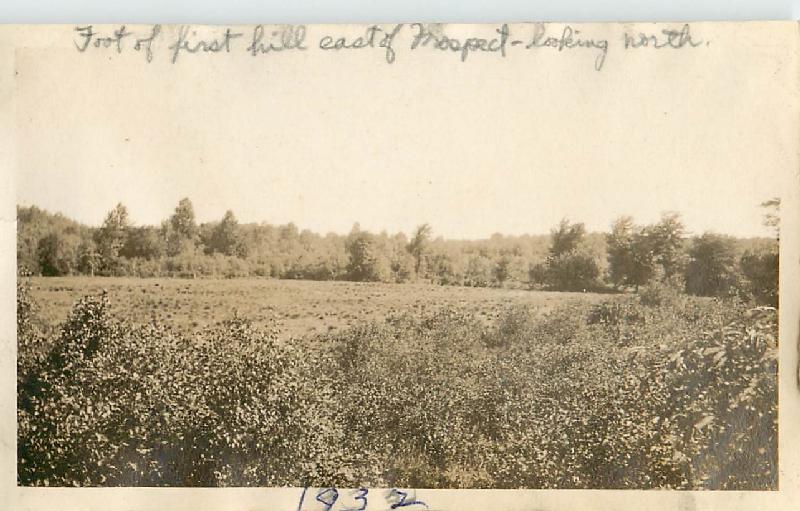 Foot of first hill east of Prospect - looking north.
1932